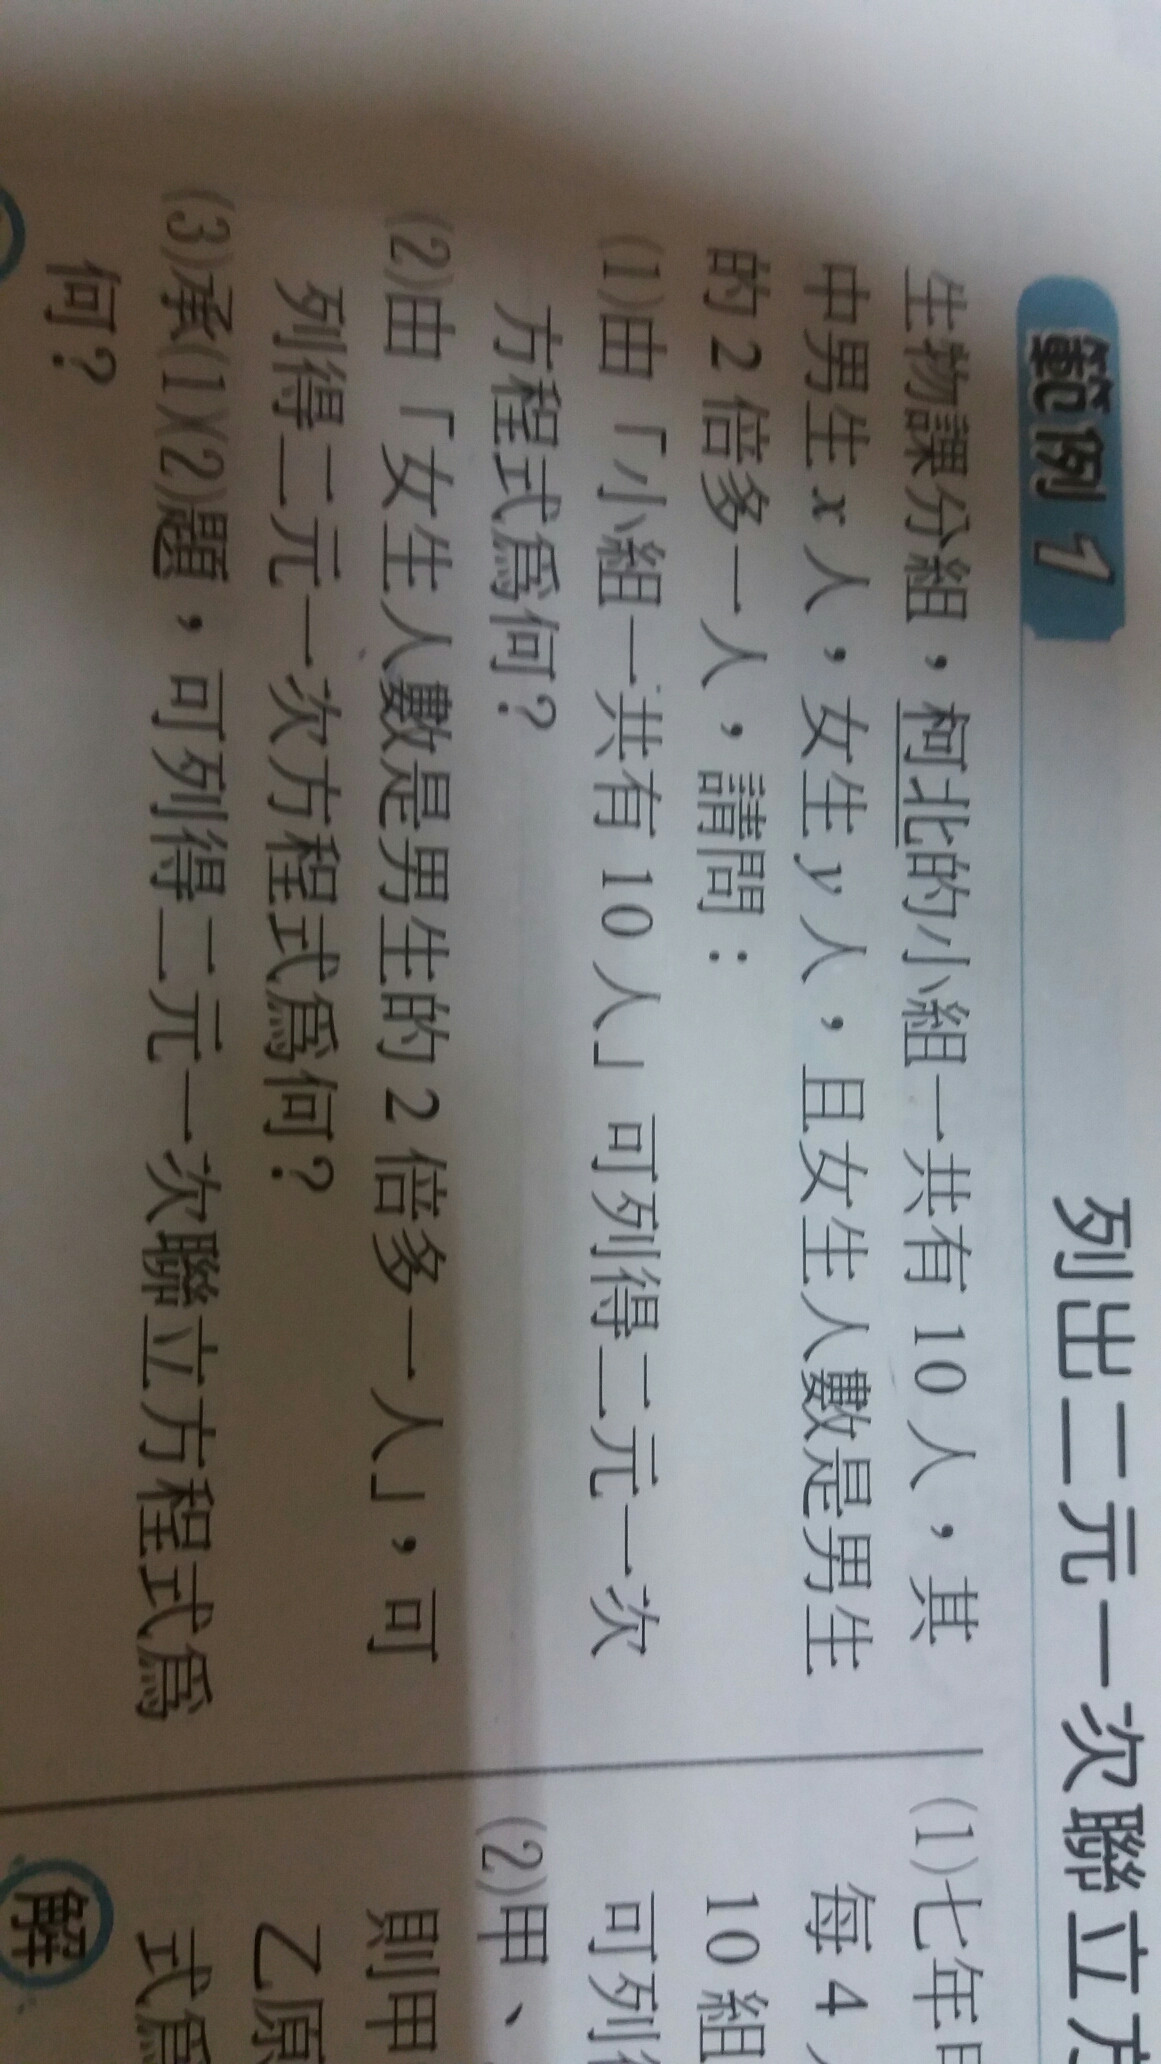 列出二元一次聯立方
範例 1
生物課分組，柯北的小組一共有 10 人，其
中男生 x 人，女生 y 人，且女生人數是男生
的 2 倍多一人，請問：
(1)由「小組一共有 10 人」可列得二元一次
方程式爲何？
(2)由「女生人數是男生的 2 倍多一人」，可
列得二元一次方程式爲何？
(3)承(1)(2)題，可列得二元一次聯立方程式爲
何？
(1)七年
每 4
10 組
可列
(2)甲、
則甲
乙原
式爲
解